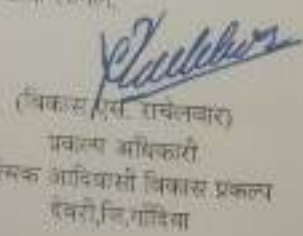 (विकास एस. राचेलवार)
प्रकल्प अधिकारी
आदिवासी विकास प्रकल्प
देवरी,जि.गोंदिया